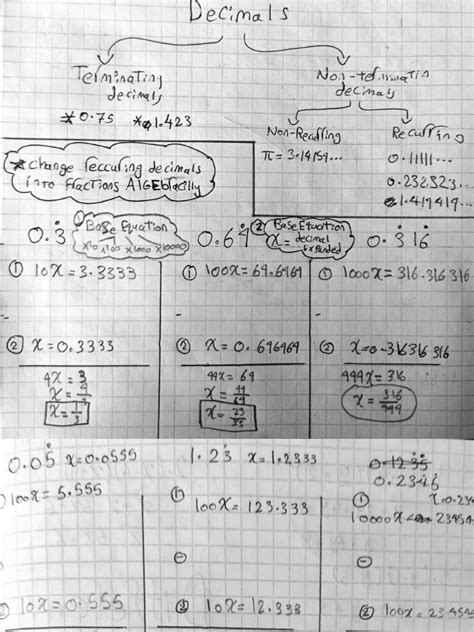 Decimals
Terminating
decimals
Non-terminatin
decimals
*0.75 * 1.423
Non-Recurring
π = 3.14159...
Recurring
0.11111...
0.232323...
1.419419...
*change reccuring decimals
into Fractions AlGEbracilly
0.3̇
① Base Equation
x10 x100 x1000 x10000
0.6̇9̇
② Base Equation
x = decimal
expanded
0.3̇16̇
① 10x = 3.3333
① 100x = 69.6969
① 1000x = 316.316 316
-
-
② x = 0.3333
② x = 0.696969
② x = 0.316316 316
9x = 3
99x = 69
999x = 316
x = 1/3
x = 23/33
x = 316/999
0.05̇ x = 0.0555
1.23̇ x = 1.2333
100x = 5.555
① 100x = 123.333
①
⊖
⊖
② 10x = 0.555
② 10x = 12.333
②